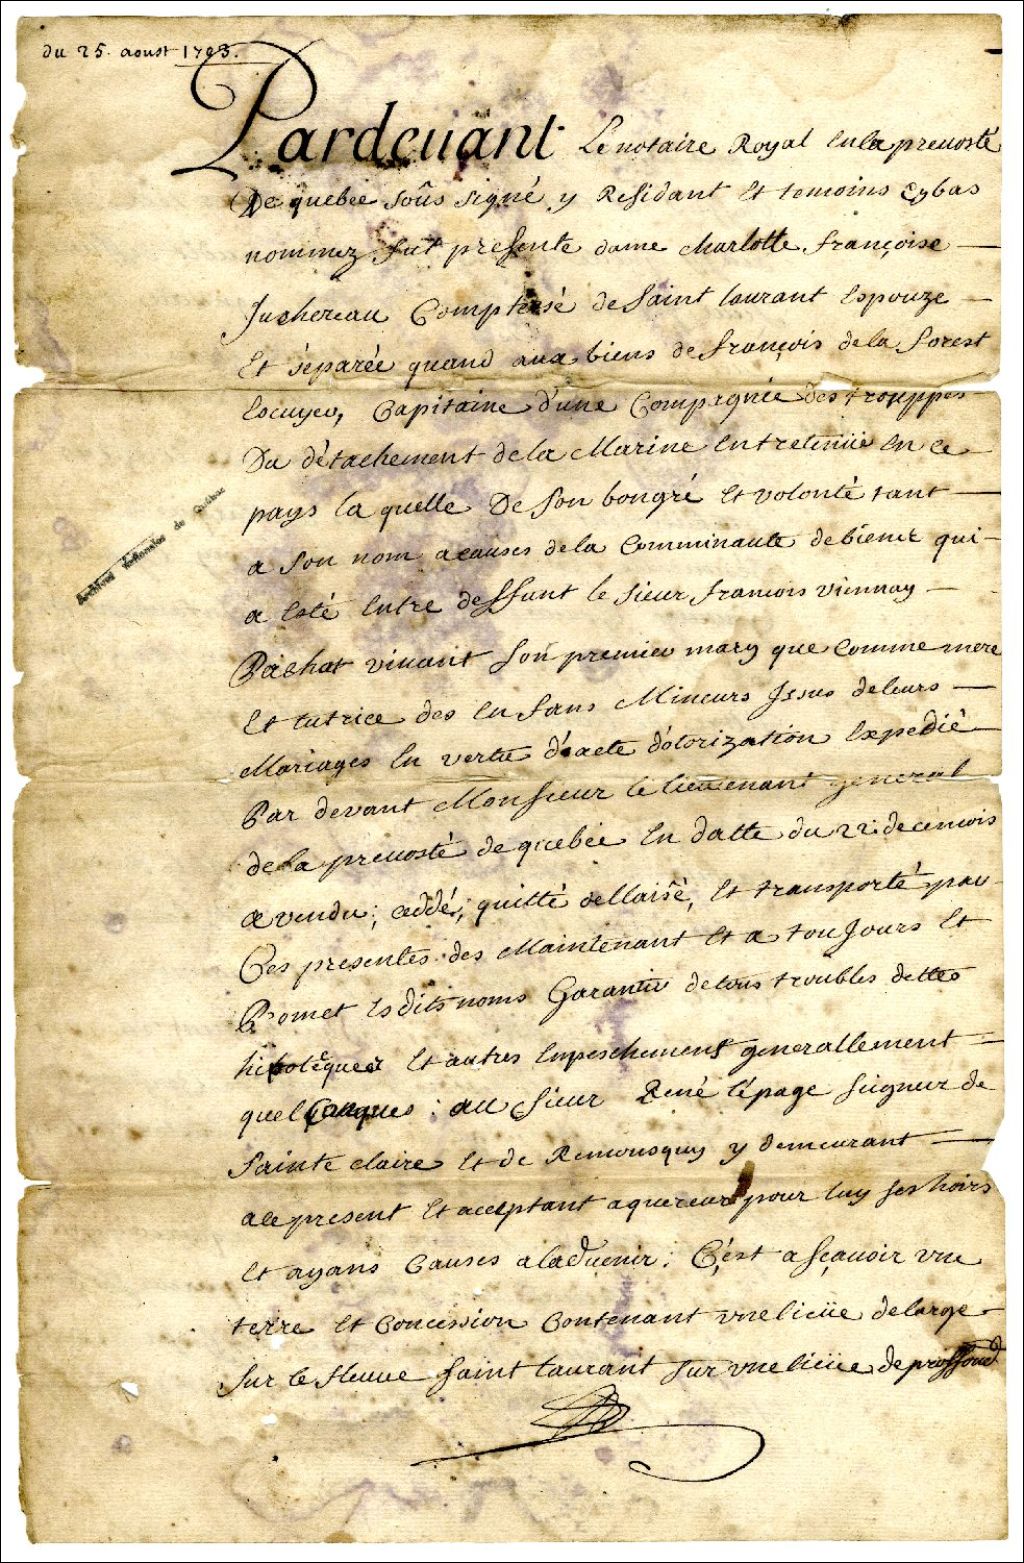 du 25. aoust 1703.
Pardeuant Le notaire Royal en la preuosté
De quebec soûs signé y Residant et temoins cybas
nommez fut presente dame charlotte françoise
Juchereau Comptesse de saint laurant Espouze
Et séparée quand aux biens de françois de la forest
Escuyer, Capitaine d'une Compagnie des trouppes
Du détachement de la Marine entretenüe en ce
pays la quelle De son bongré et volonté tant
a son nom a causes de la Comminauté de biens qui
a Esté Entre deffunt le sieur francois viennay
Pachat viuant son premier mary que comme mere
Et tutrice des Enfans Mineurs Issus de leurs
Mariages En vertu d'acte d'otorization Expedié
Par devant Monsieur le lieutenant general
de la preuosté de quebec En datte du 22: decembre
a vendu; ceddé; quitté dellaisé, Et transporté par
Ces presentes des Maintenant Et a tousjours Et
Promet Esdits noms Garantir de tous troubles dettes
hipotèques Et autres Empeschement generallement
quelconques : au sieur René lépage seigneur de
sainte claire Et de Remousquy y demeurant
a ce present Et acceptant aquereur pour luy ses hoirs
Et ayans Causes a laduenir; C'est asçauoir vne
terre Et Concession Contenant vne lieüe de large
sur le fleuue saint laurant sur vne lieüe de proffond
Archives Nationales de Québec